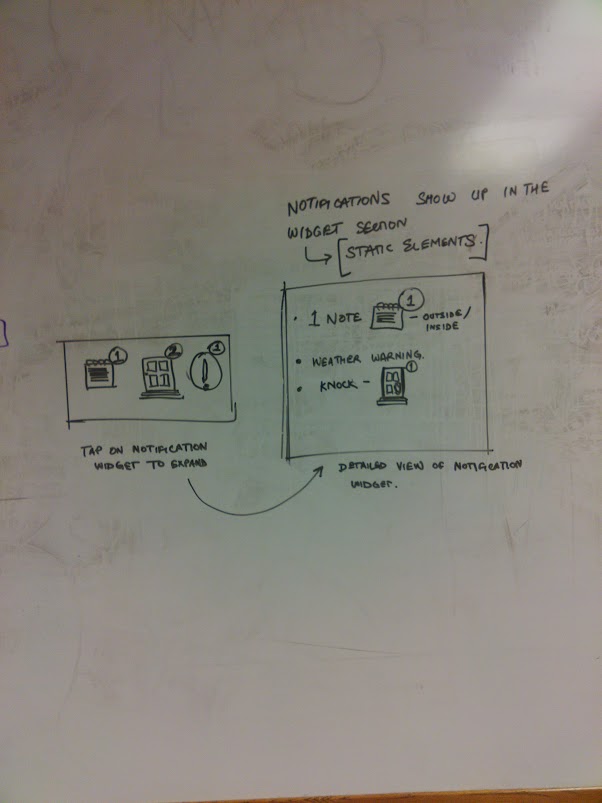 NOTIFICATIONS SHOW UP IN THE
WIDGET SECTION
[STATIC ELEMENTS.]
1 2 1
TAP ON NOTIFICATION
WIDGET TO EXPAND
• 1 NOTE 1 – OUTSIDE/
INSIDE
• WEATHER WARNING.
• KNOCK – 1
DETAILED VIEW OF NOTIFICATION
WIDGET.